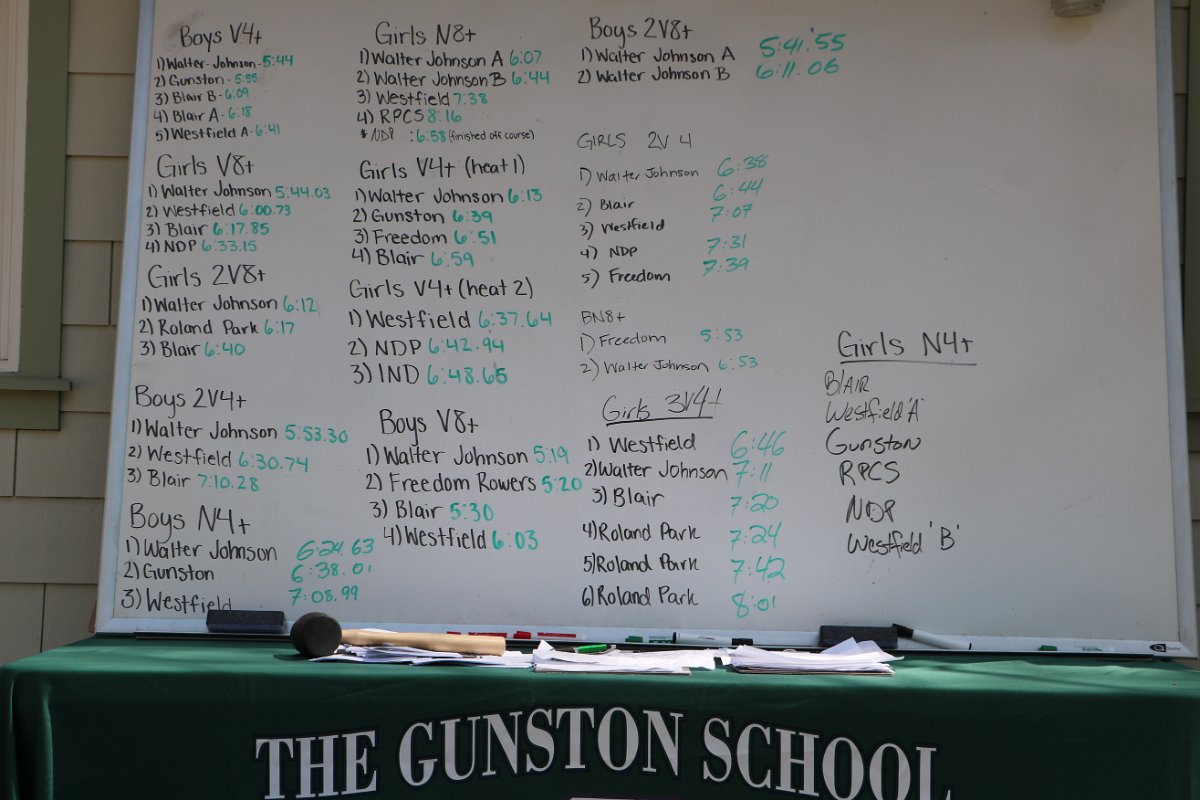 Boys V4+
1) Walter-Johnson-5:44
2) Gunston - 5:55
3) Blair B - 6:09
4) Blair A - 6:18
5) Westfield A - 6:41
Girls V8+
1) Walter Johnson 5:44.03
2) Westfield 6:00.73
3) Blair 6:17.85
4) NDP 6:33.15
Girls 2V8+
1) Walter Johnson 6:12
2) Roland Park 6:17
3) Blair 6:40
Boys 2V4+
1) Walter Johnson 5:53.30
2) Westfield 6:30.74
3) Blair 7:10.28
Boys N4+
1) Walter Johnson 6:24.63
2) Gunston 6:38.01
3) Westfield 7:08.99
Girls N8+
1) Walter Johnson A 6:07
2) Walter Johnson B 6:44
3) Westfield 7:38
4) RPCS 8:16
* NDP : 6:58 (finished off course)
Girls V4+ (heat 1)
1) Walter Johnson 6:13
2) Gunston 6:39
3) Freedom 6:51
4) Blair 6:59
Girls V4+ (heat 2)
1) Westfield 6:37.64
2) NDP 6:42.94
3) IND 6:48.65
Boys V8+
1) Walter Johnson 5:19
2) Freedom Rowers 5:20
3) Blair 5:30
4) Westfield 6:03
Boys 2V8+
1) Walter Johnson A 5:41.55
2) Walter Johnson B 6:11.06
GIRLS 2V 4
1) Walter Johnson 6:38
2) Blair 6:44
3) Westfield 7:07
4) NDP 7:31
5) Freedom 7:39
BN8+
1) Freedom 5:53
2) Walter Johnson 6:53
Girls 3V4+
1) Westfield 6:46
2) Walter Johnson 7:11
3) Blair 7:20
4) Roland Park 7:24
5) Roland Park 7:42
6) Roland Park 8:01
Girls N4+
BLAIR
Westfield 'A'
Gunston
RPCS
NDP
Westfield 'B'
THE GUNSTON SCHOOL